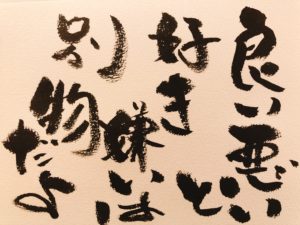 良い悪いと
好き嫌いは
別物だよ